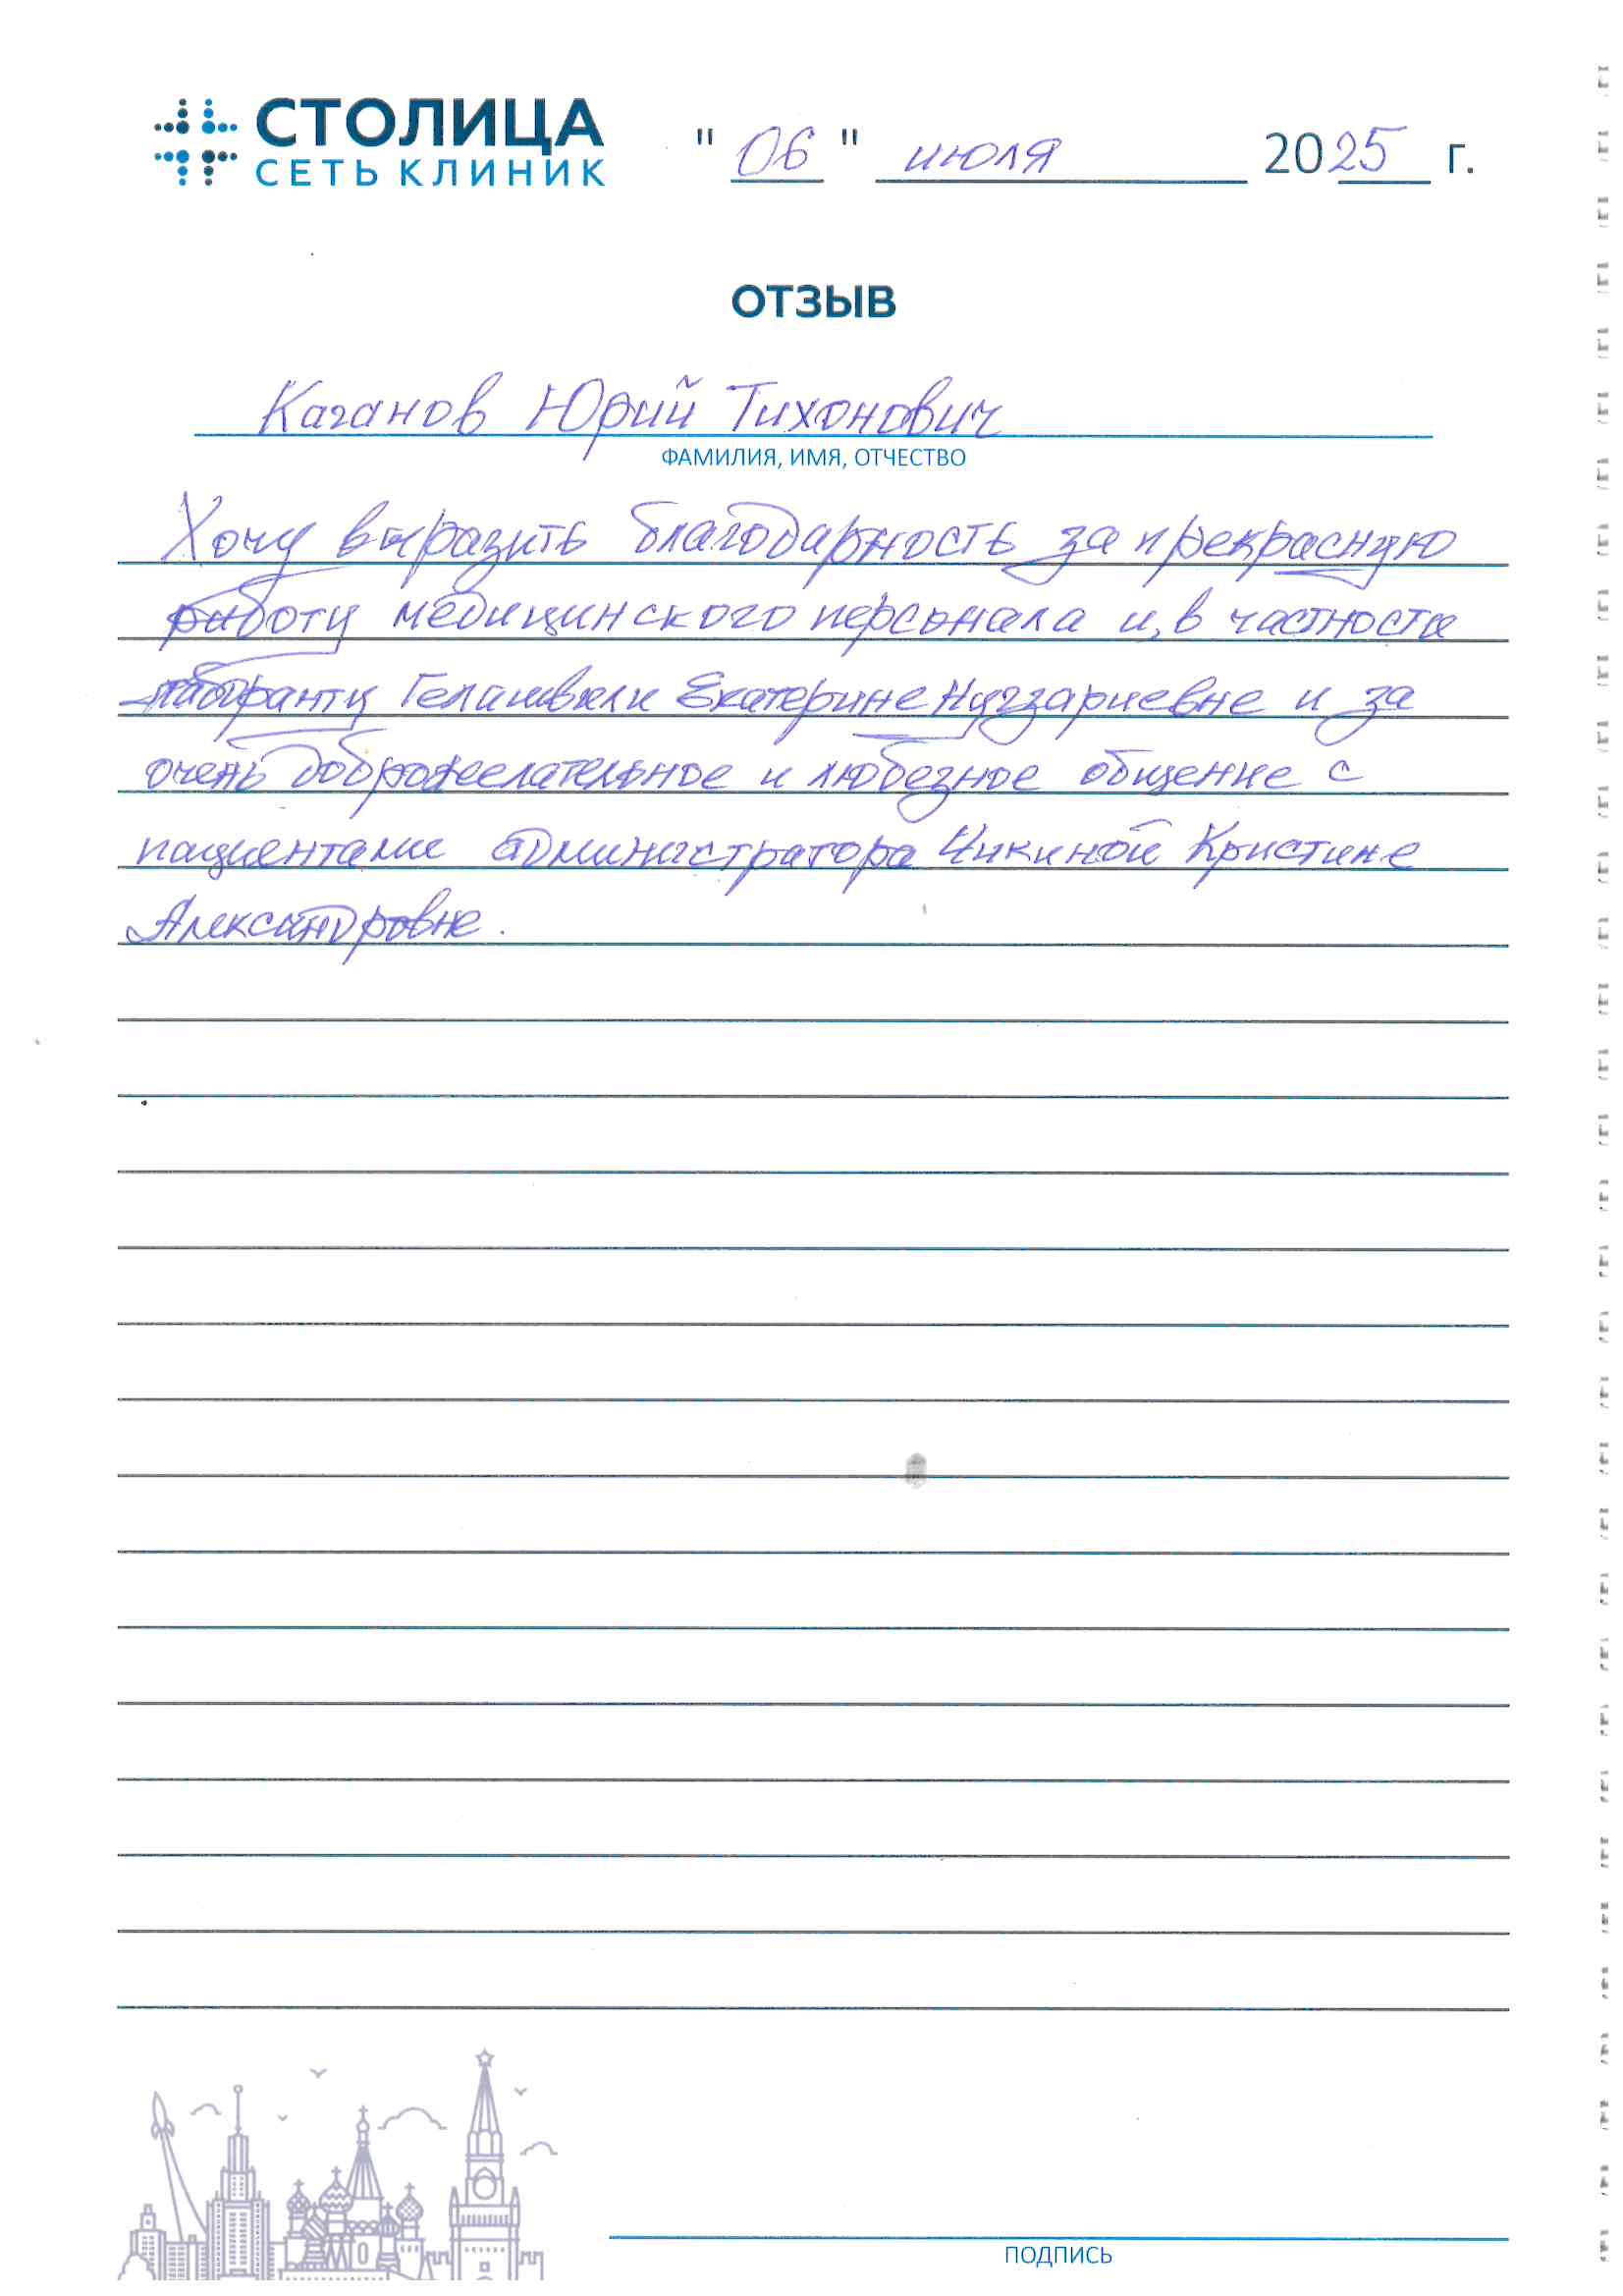 СТОЛИЦА
СЕТЬ КЛИНИК
"06" июля 2025 г.
ОТЗЫВ
Каганов Юрий Тихонович
ФАМИЛИЯ, ИМЯ, ОТЧЕСТВО
Хочу выразить благодарность за прекрасную
работу медицинского персонала и, в частности
лаборанту Гелашвили Екатерине Нугзариевне и за
очень доброжелательное и любезное общение с
пациентами администратора Чикиной Кристине
Александровне.
ПОДПИСЬ